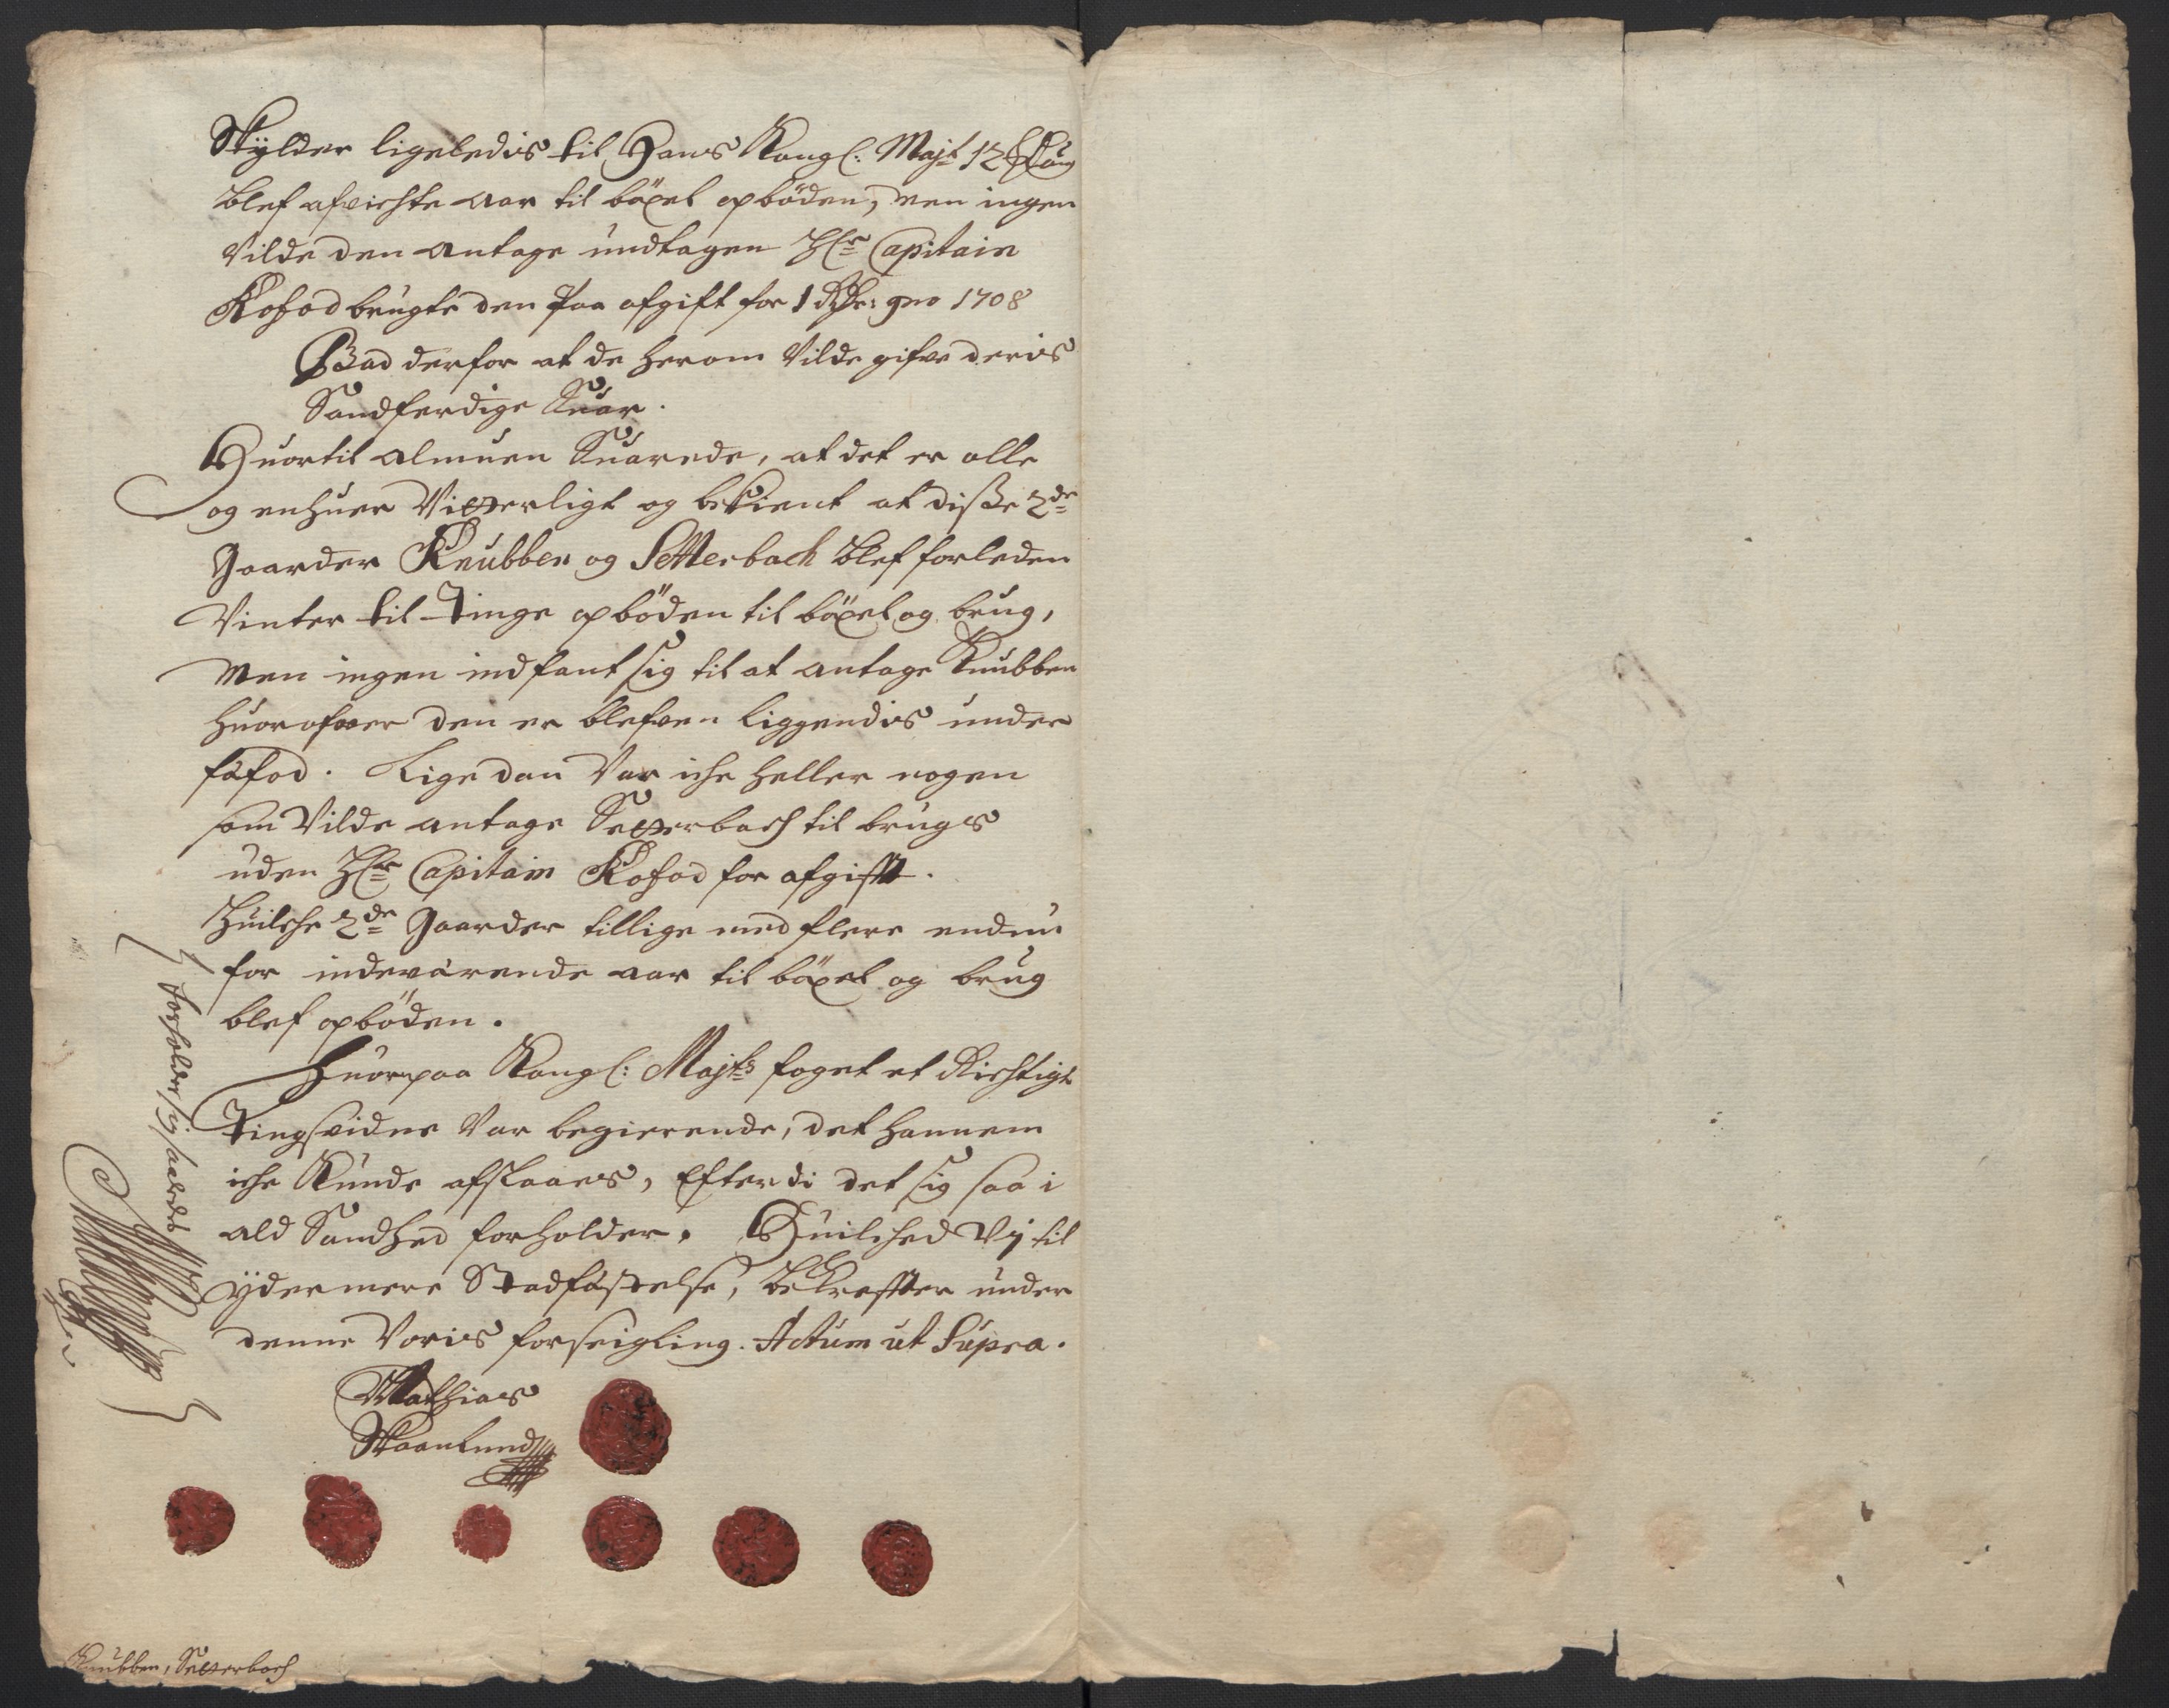 Skylder ligeledis til Hans Kongl: Majt 12
blef afvichte aar til böxel opböden, men ingen
Vilde den antage undtagen Hr Capitain
Kofod brugte den paa afgift for 1 Rdr: pro 1708
Bad derfor at de herom Vilde gifve deris
Sandferdige Suar.
Huortil almuen Suarede, at det er alle
og enhuer Vitterligt og bekient at disse 2de
Gaarder Knubben og Setterbach blef forleden
Vinter til Tinge opböden til böxel og brug,
Men ingen indfant sig til at antage Knubben
huorofver den er blefven liggendis under
fäfod. Ligedan Var iche heller nogen
som Vilde antage Setterbach til brugs
uden Hr Capitain Kofod for afgifft.
Huilche 2de Gaarder tillige med flere endnu
for indeværende aar til böxel og brug
blef opböden.
Huorpaa Kongl: Majts foget et Richtigt
Tingsvidne Var begierende, det hannem
iche Kunde afslaaes, Efterdi det sig saa i
ald Sandhed forholder. Huilched Vj til
ydermere Stadfästelse, bekreffter under
denne Voris forseigling. Actum ut Supra.
Mathias
Skaanlund
forholder sig saaledis
Knubben, Setterbach